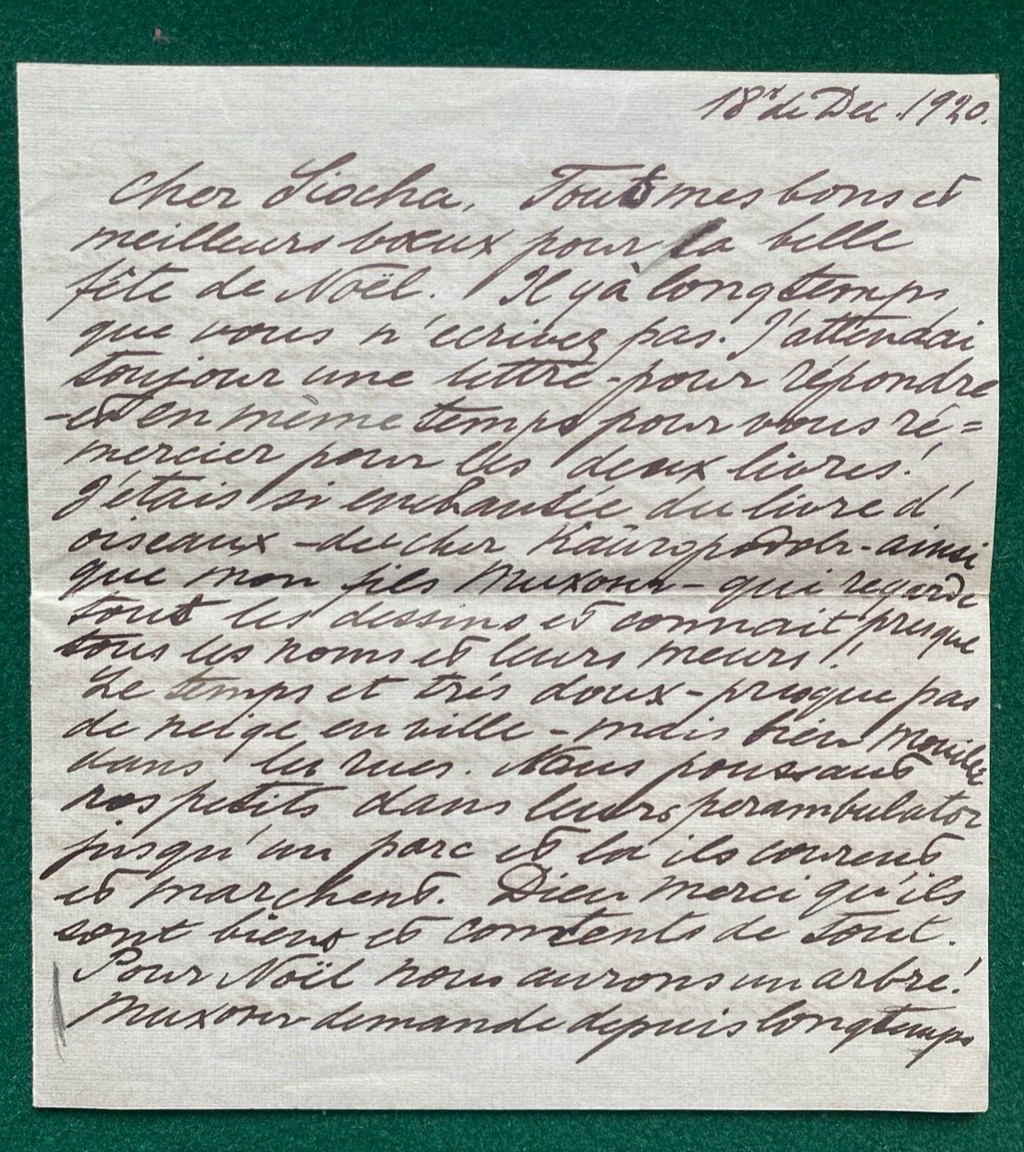 18r de Dec. 1920.
Cher Liocha, Touts mes bons et
meilleurs bœux pour la belle
fête de Noël. Il y à longtemps
que vous n'ecrivez pas. J'attendai
toujour une lettre - pour répondre
- et en mème temps pour vous ré=
mercier pour les deux livres!
J'étais si enchantée du livre d'
oiseaux - du cher - ainsi
que mon fils Тихон - qui regarde
tout les dessins et connait presque
tous les noms et leurs meurs!
Le temps et trés doux - presque pas
de neige en ville - mais bien mouillé
dans les rues. Nous poussant
nos petits dans leurs perambulator
jusqu'un parc et la ils courent
et marchent. Dieu merci qu'ils
sont biens et contents de tout.
Pour Noël nous aurons un arbre!
Тихон demande depuis longtemps